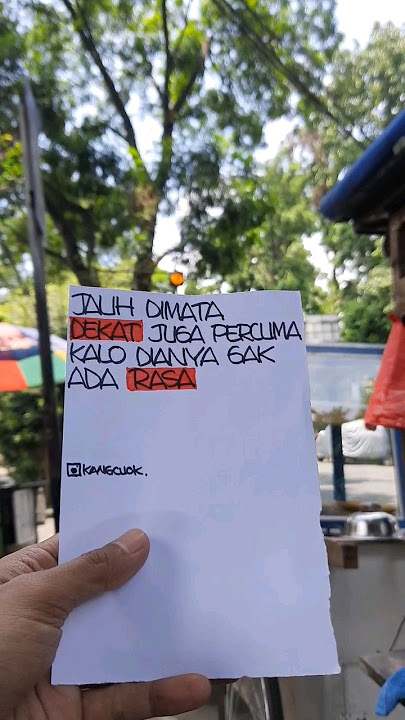 JAUH DIMATA
DEKAT JUGA PERCUMA
KALO DIANYA GAK
ADA RASA
KANGCUOK.